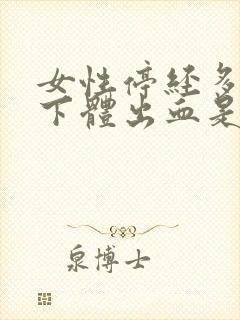 女性停经多
下體出血是
泉博士